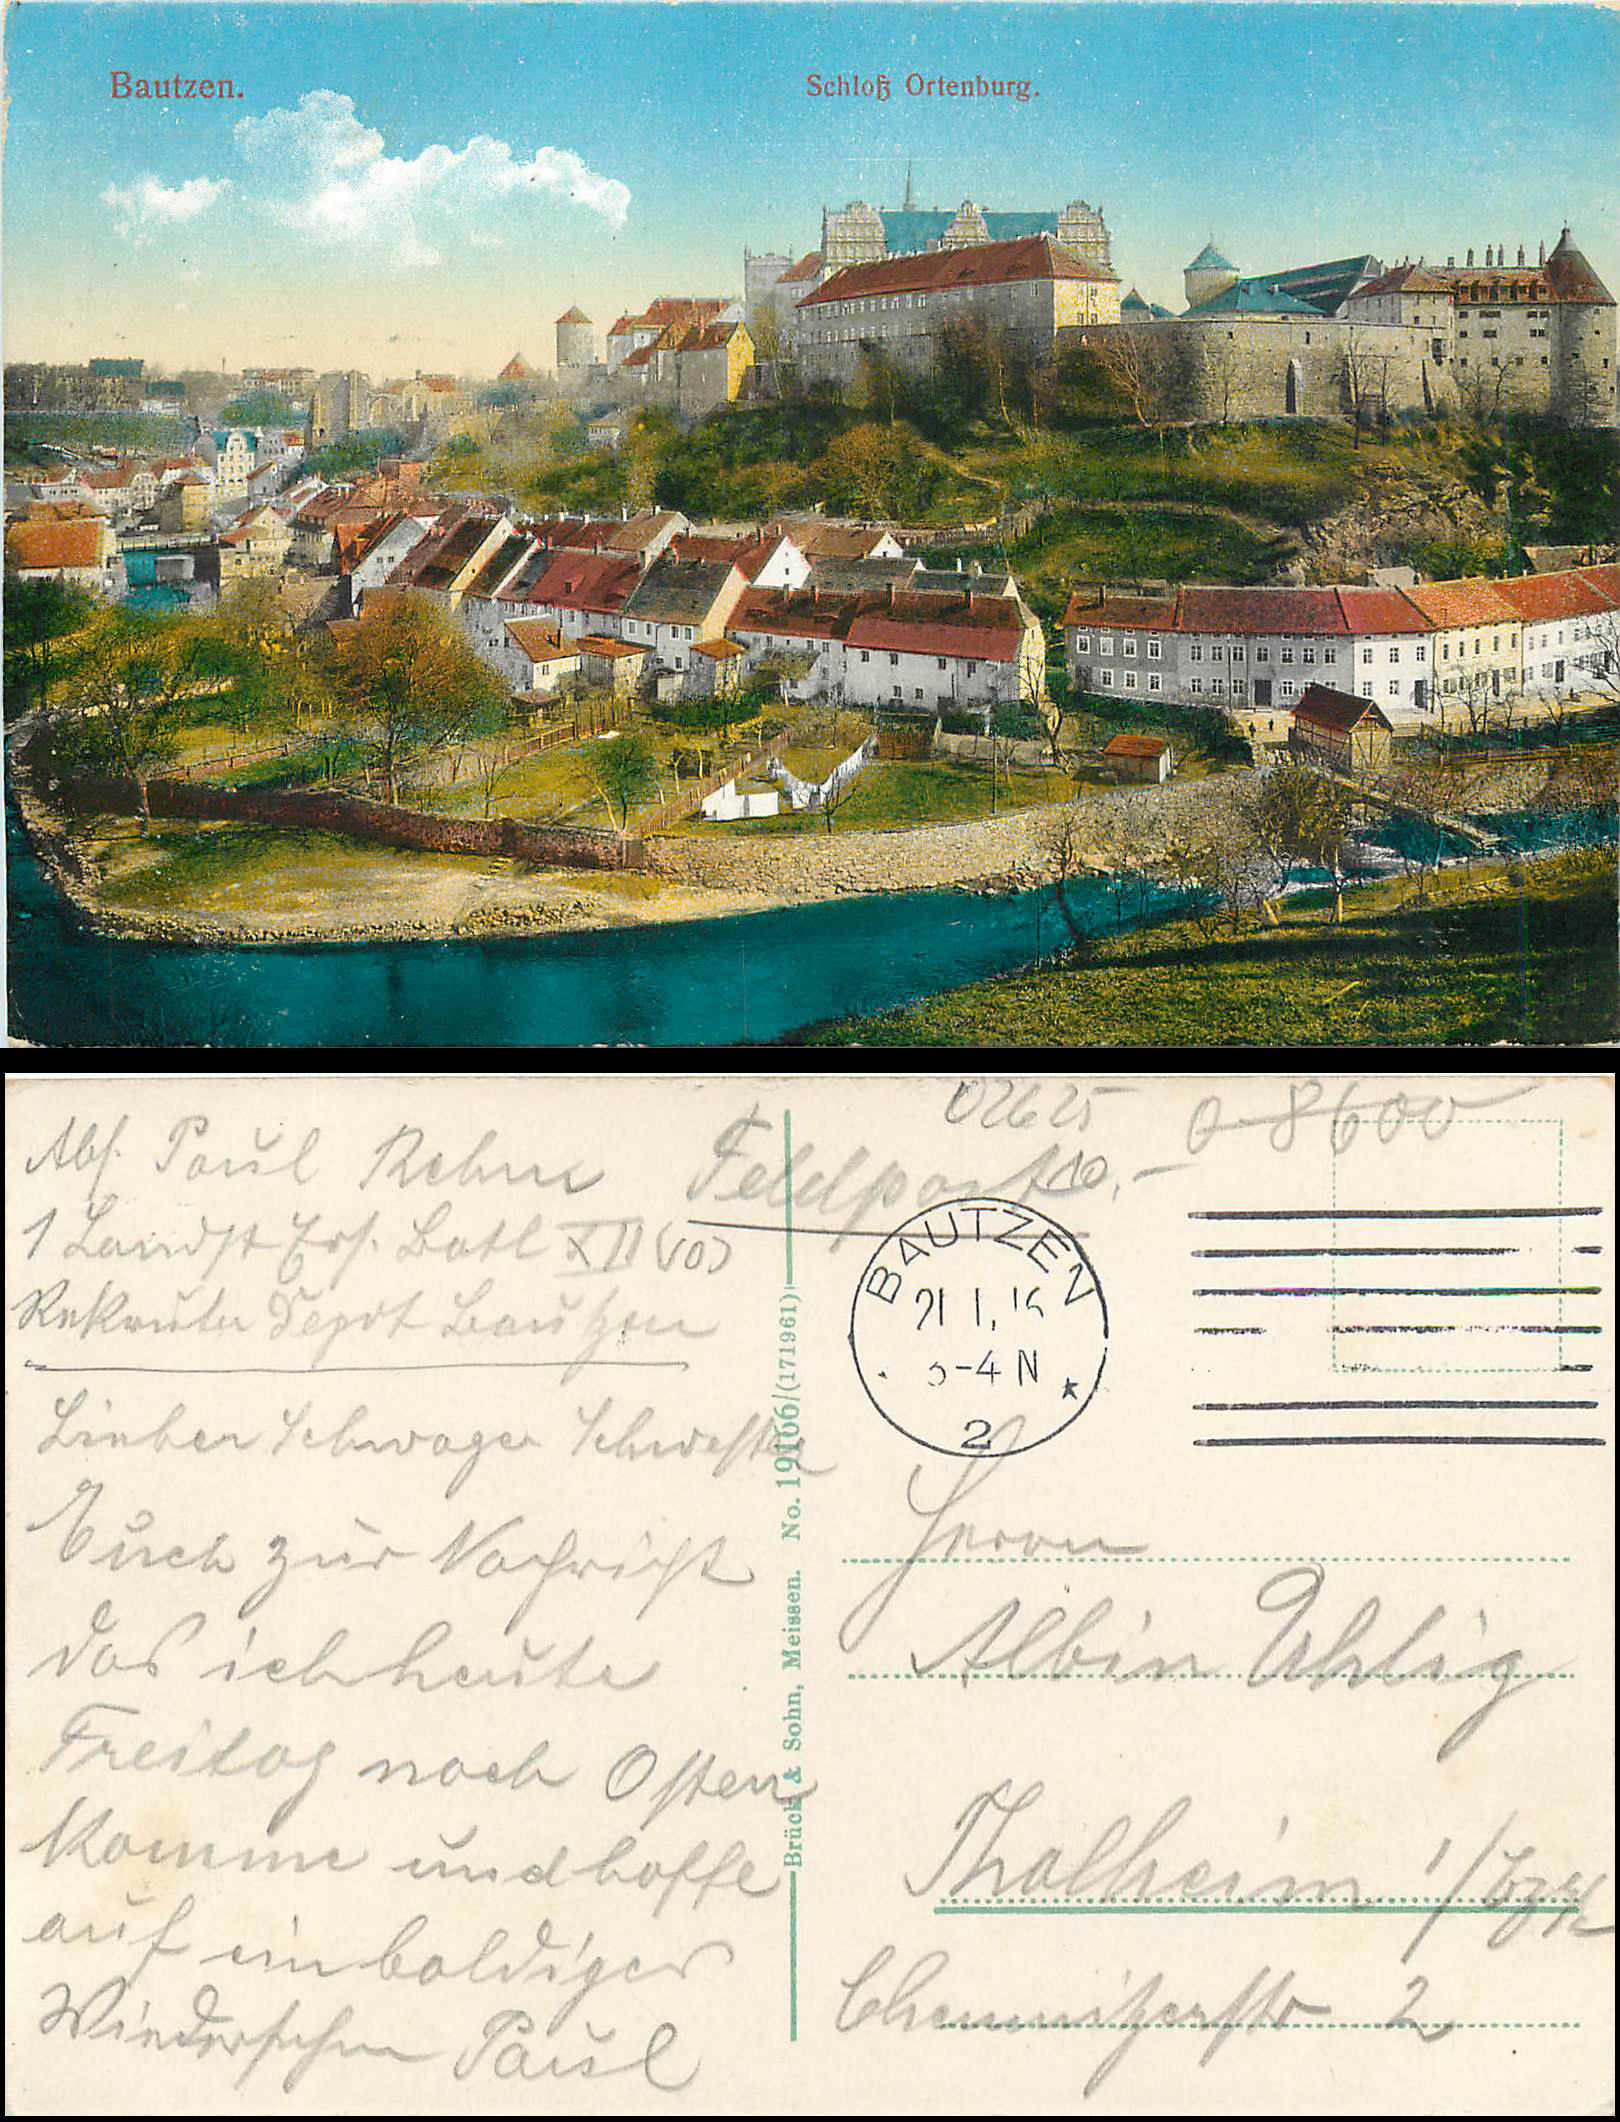 Bautzen.
Schloß Ortenburg.
02625
O-8600
10,-
Feldpost
Abs. Paul Rehm
1 Landst Ers. Batl XII (10)
Rekruten Depot Bautzen
Lieber Schwager Schwester
Euch zur Nachricht
das ich heute
Freitag nach Osten
komme und hoffe
auf ein baldiges
Wiedersehn Paul
Brück & Sohn, Meissen. No. 19166/(171961)
BAUTZEN
21.1.16
3-4 N
2
Herrn
Albin Uhlig
Thalheim i/Erzg
Chemnitzerstr 2